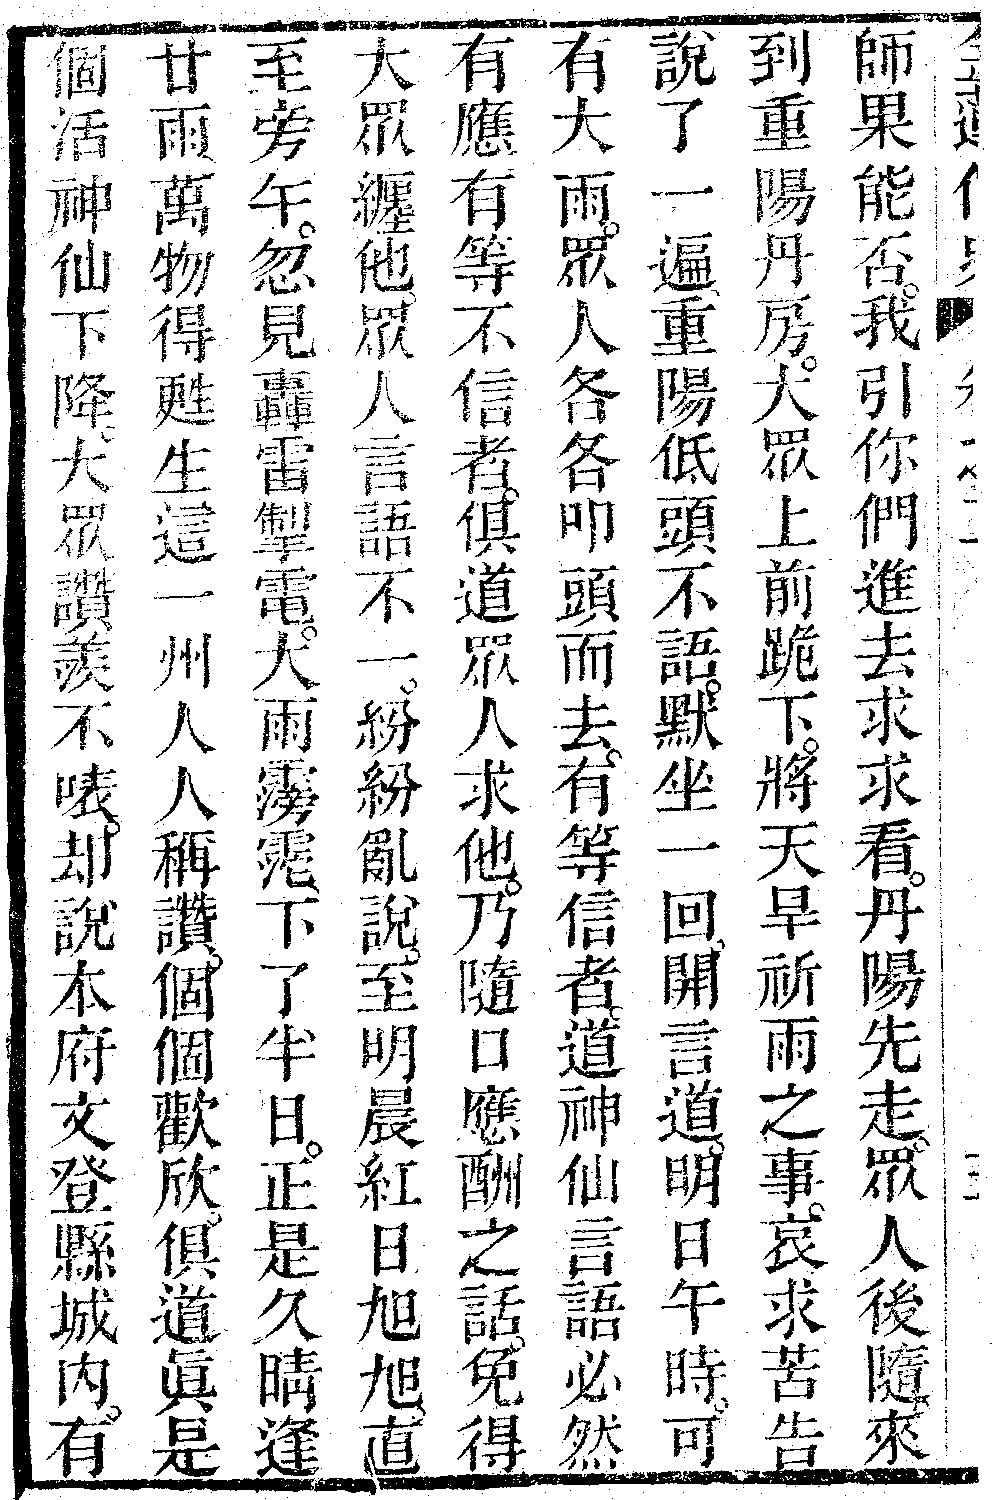 師果能否。我引你們進去求求看。丹陽先走。眾人後隨。來
到重陽丹房。大眾上前跪下。將天旱祈雨之事。哀求苦告
說了一遍。重陽低頭不語。默坐一回。開言道。明日午時。可
有大雨。眾人各各叩頭而去。有等信者。道神仙言語必然
有應。有等不信者。俱道眾人求他。乃隨口應酬之話。免得
大眾纏他。眾人言語不一。紛紛亂說。至明晨紅日旭旭。直
至旁午。忽見轟雷掣電。大雨霶霑。下了半日。正是久晴逢
甘雨萬物得甦生這一州人人稱讚。個個歡欣。俱道眞是
個活神仙下降。大眾讚羨不㖡。却說本府文登縣城內。有